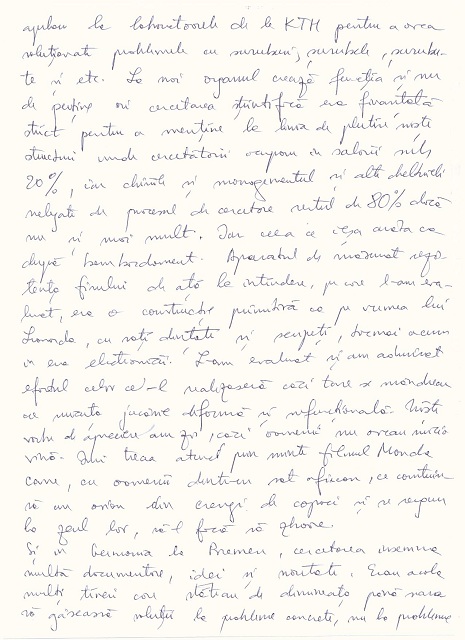 ajuns la laboratoarele de la KTH pentru a avea
soluționate problemele cu suruburi, șurubele, șurubu-
te și etc. La noi organul crează funcția și nu
de puține ori cercetarea științifică era finanțată
strict pentru a menține la linia de plutire niște
structuri unde cercetătorii ocupau în salarii sub
20%, iar chiriile și managementul și alte cheltuieli
nelegate de procesul de cercetare restul de 80% dacă
nu și mai mult. Iar ceea ce ieșea arăta ca
după bombardament. Aparatul de măsurat rezis-
tența firului de ață la întindere, pe care l-am eva-
luat, era o construcție primitivă ca pe vremea lui
Leonardo, cu roți dințate și scripeți, tocmai acum
în era electronicii. L-am evaluat și am admirat
efortul celor ce l-au realizaseră căci tare se mândreau
cu această jucărie diformă și nefuncțională. Niște
vorbe de apreciere am zis, căci oamenii nu aveau nicio
vină. Îmi trecea atunci prin minte filmul Mondo
Cane, cu oamenii dintr-un sat african, ce construi-
ră un avion din crengi de copaci și se rugau
la zeul lor, să-l facă să zboare.
Și în Germania la Bremen, cercetarea însemna
multă documentare, idei și noutate. Erau acolo
mulți tineri care stăteau de dimineața până seara
să găsească soluții la probleme concrete, nu la probleme